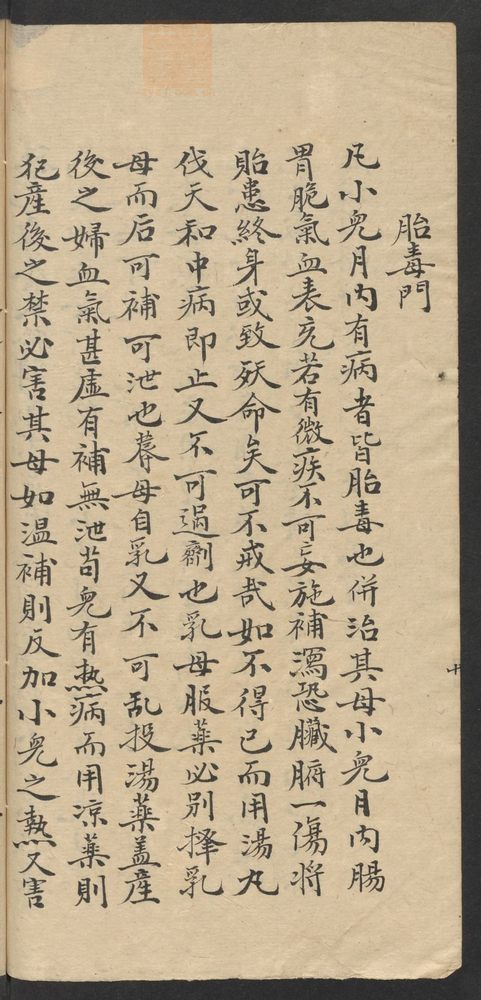 胎毒門
凡小兒月內有病者皆胎毒也併治其母小兒月內腸
胃脆氣血未充若有微疾不可妄施補瀉恐臟腑一傷將
貽患終身或致殀命矣可不戒哉如不得已而用湯丸
伐天和中病即止又不可過劑也乳母服藥必別擇乳
母而后可補可泄也蓐母自乳又不可乱投湯藥盖產
後之婦血氣甚虛有補無泄苟兒有热病而用凉藥則
犯產後之禁必害其母如温補則反加小兒之熱又害